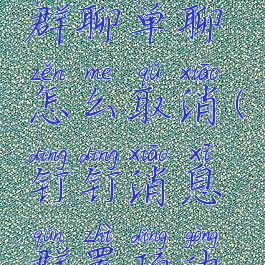 群聊单聊
zěn me qǔ xiāo
怎么取消(
dīng dīng xiāo xī
钉钉消息
qún zhì dǐng gōng
群置顶功